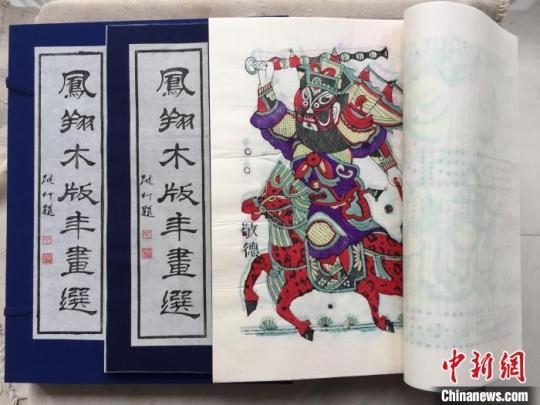 鳳翔木版年畫選
鳳翔木版年畫選
敬德
中新网
Chinanews.com